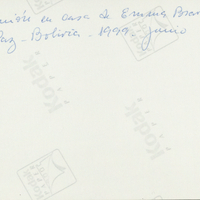 en casa de Emma
Paz - Bolivia - 1999 - junio
Kodak
Kodak
Kodak
Kodak